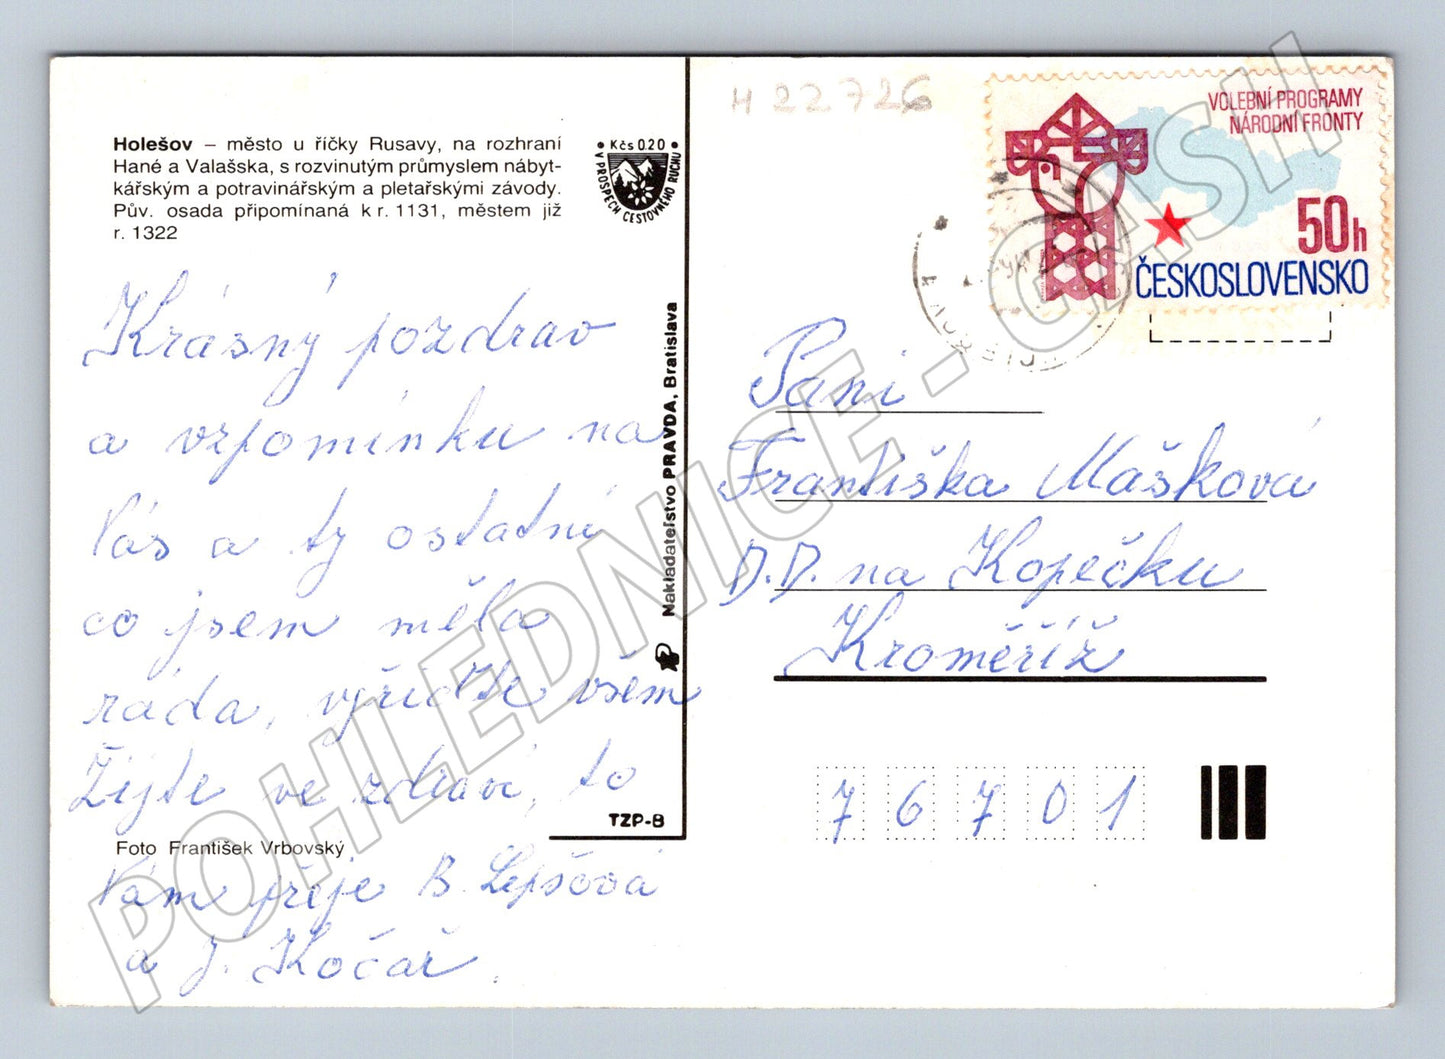 H 22726
Holešov – město u říčky Rusavy, na rozhraní
Hané a Valašska, s rozvinutým průmyslem nábyt-
kářským a potravinářským a pletařskými závody.
Pův. osada připomínaná k r. 1131, městem již
r. 1322
Kčs 0.20
V PROSPĚCH CESTOVNÉHO RUCHU
Krásný pozdrav
a vzpomínku na
Vás a ty ostatní
co jsem měla
ráda, vyřiďte všem
Žijte ve zdraví, to
Foto František Vrbovský
Vám přeje B. Lepšová
a J. Kočař.
Nakladateľstvo PRAVDA, Bratislava
TZP-8
VOLEBNÍ PROGRAMY
NÁRODNÍ FRONTY
50h
ČESKOSLOVENSKO
Paní
Františka Mašková
D.D. na Kopečku
Kroměříž
76701
POHLEDNICE - CASH